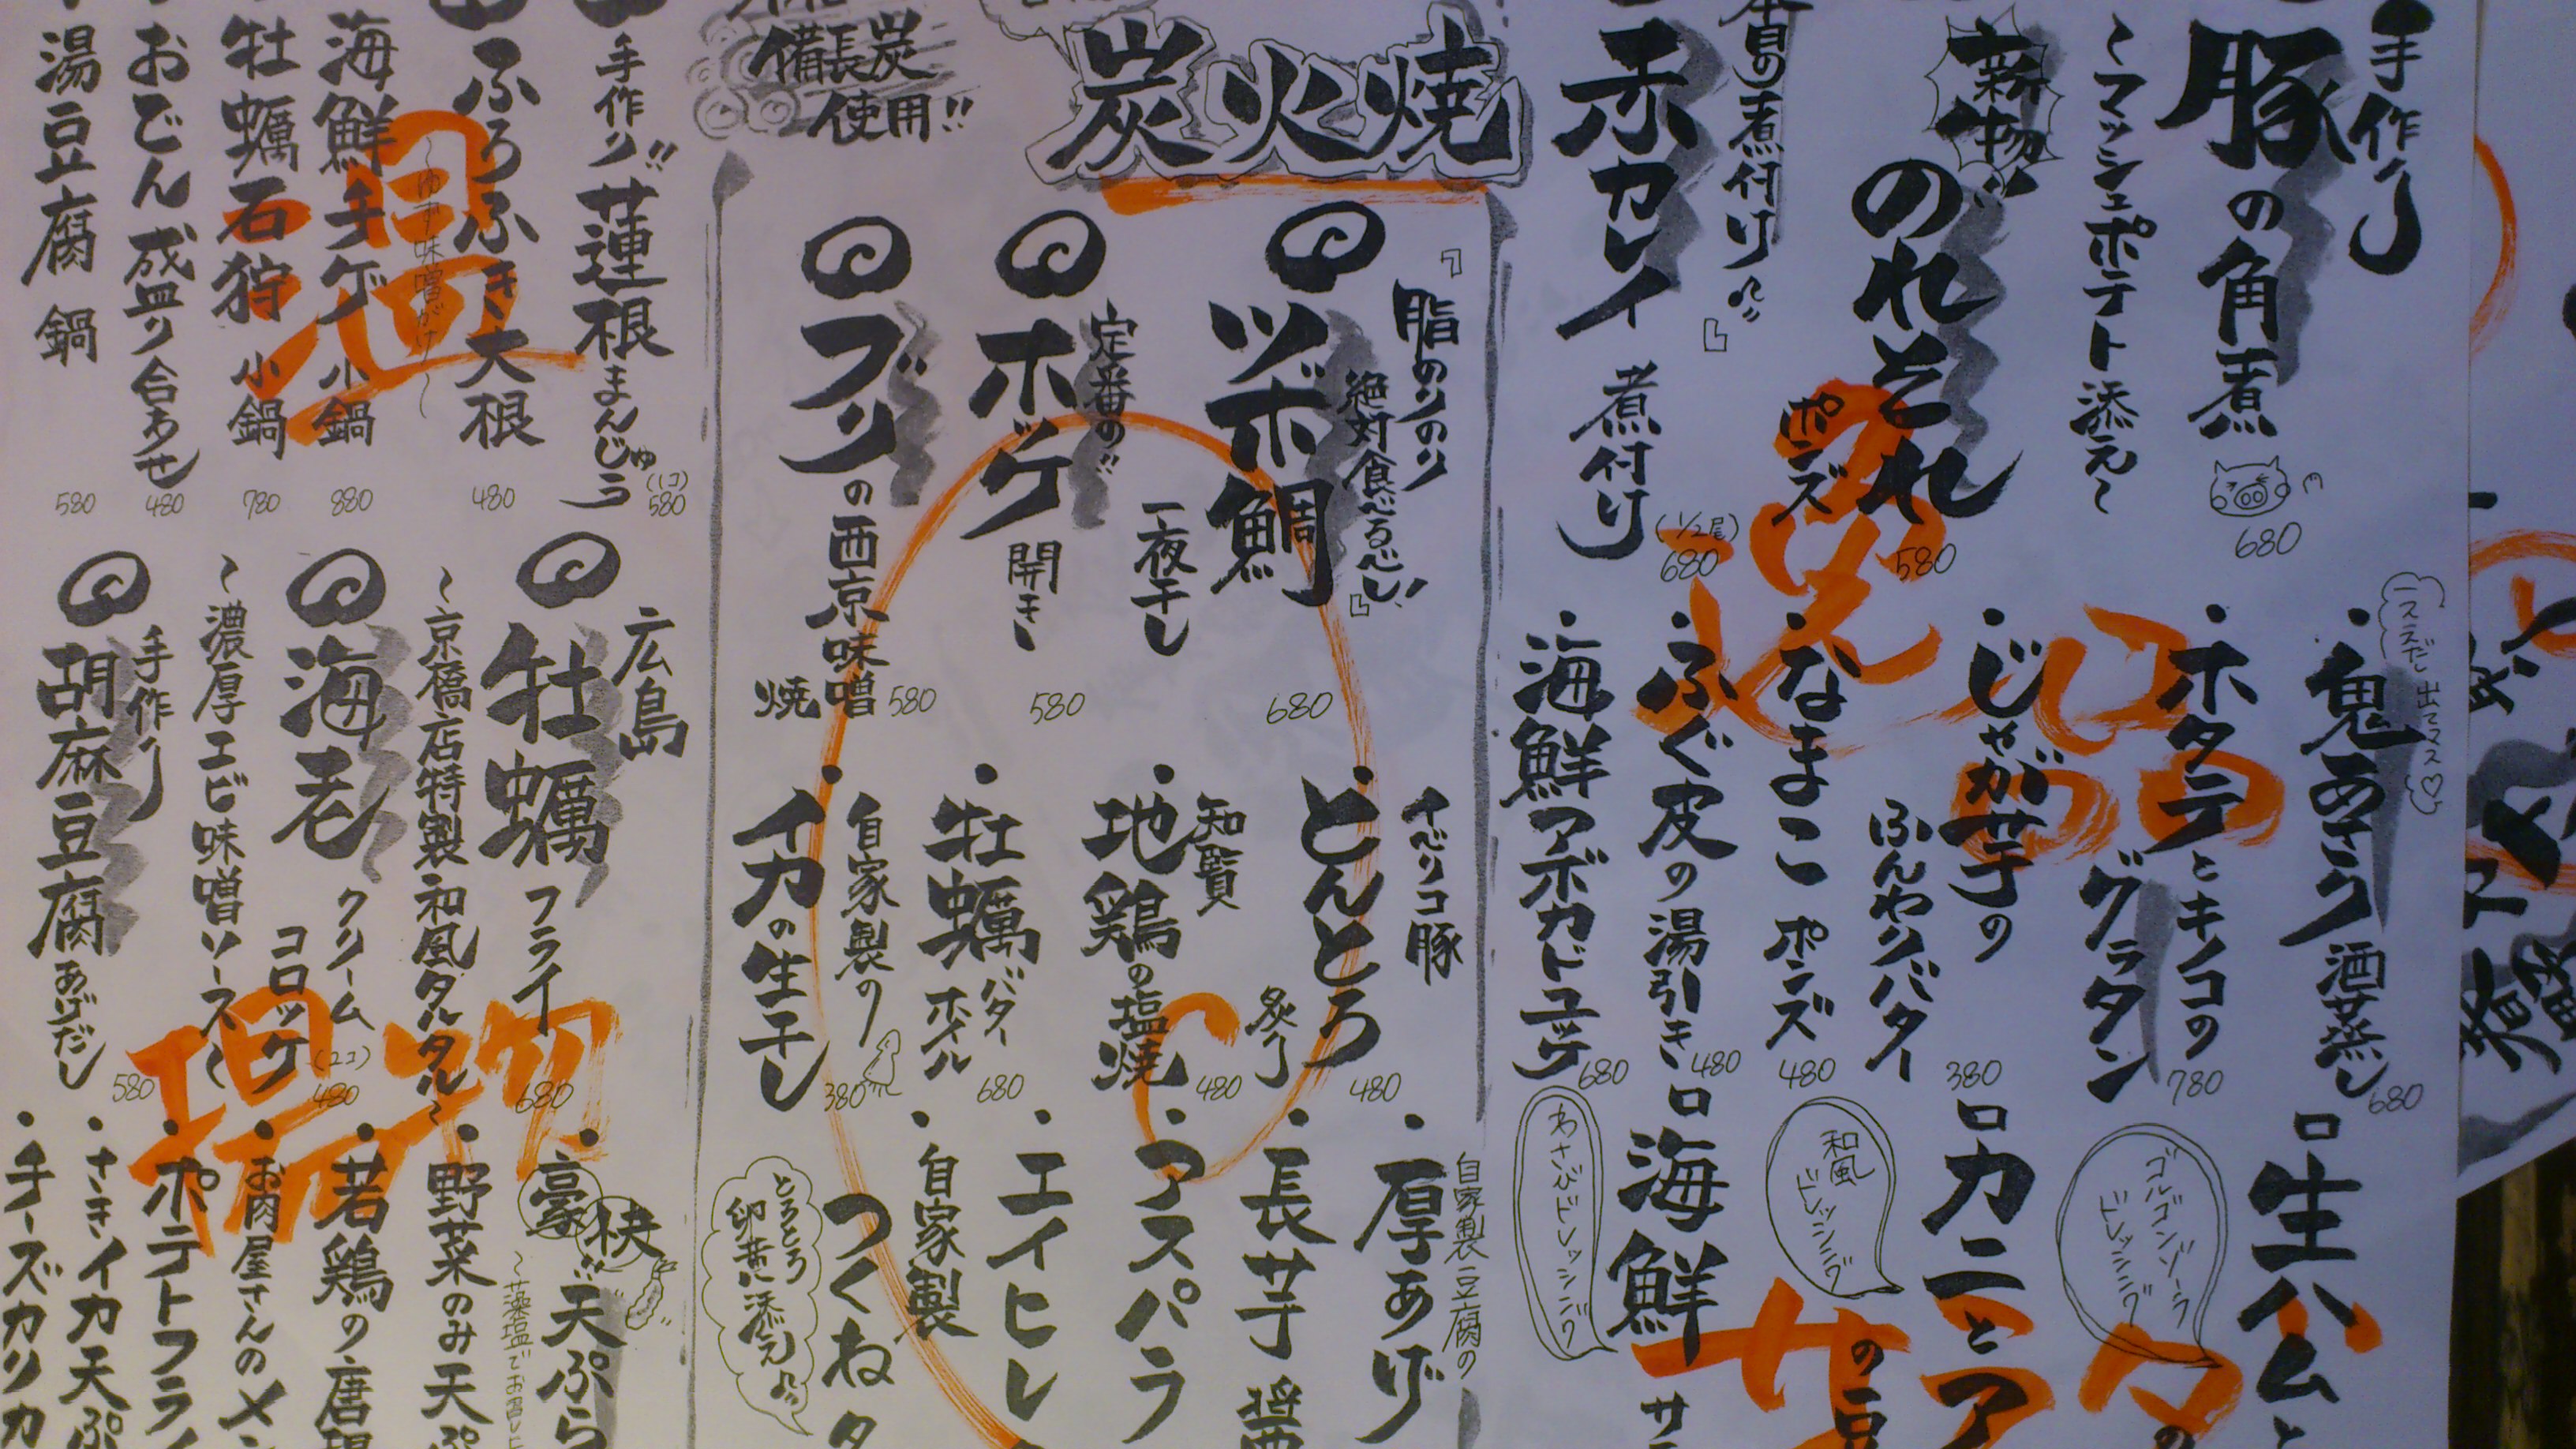 手作り
豚の角煮
〜マッシュポテト添え〜
680
新物
のれそれ
ポンズ
580
本日の煮付け
赤カレイ
煮付け
(1/2尾)
680
一品
ススだし
出てススス♡
・鬼あさり酒蒸し
680
・ホタテとキノコの
グラタン
780
・じゃが芋の
ふんわりバター
380
・なまこ ポンズ
480
・ふぐ皮の湯引き
480
・海鮮アボカドユッケ
680
生ハムと
ゴルゴンゾーラ
ドレッシング
カニとア
和風
ドレッシング
海鮮
わさびドレッシング
サ
炭火焼
備長炭
使用!!
『脂のりのり
絶対食べるべし!』
ツボ鯛
一夜干し
680
定番の!!
ホッケ
開き
580
ブリの西京味噌
焼
580
イベリコ豚
・とんとろ
炙り
480
知覧
・地鶏の塩焼
480
・牡蠣バター
ホイル
680
自家製の
・イカの生干し
380
自家製豆腐の
・厚あげ
・長芋
・アスパラ
・エイヒレ
・自家製
つくね
とろとろ
卵黄添え
温
手作り!!蓮根まんじゅう
(1コ)
580
ふろふき大根
〜ゆず味噌がけ〜
480
海鮮手ゲ 小鍋
880
牡蠣石狩 小鍋
780
おでん盛り合わせ
480
湯豆腐 鍋
580
揚物
広島
牡蠣フライ
〜京橋店特製和風タルタル〜
680
海老クリーム
コロッケ
(2コ)
480
〜濃厚エビ味噌ソース〜
手作り
胡麻豆腐あげだし
580
・豪快!!天ぷら
〜藻塩でお召し上
・野菜のみ天ぷ
・若鶏の唐揚
・お肉屋さんのメン
・ポテトフライ
・さきイカ天ぷ
・チーズカリカ